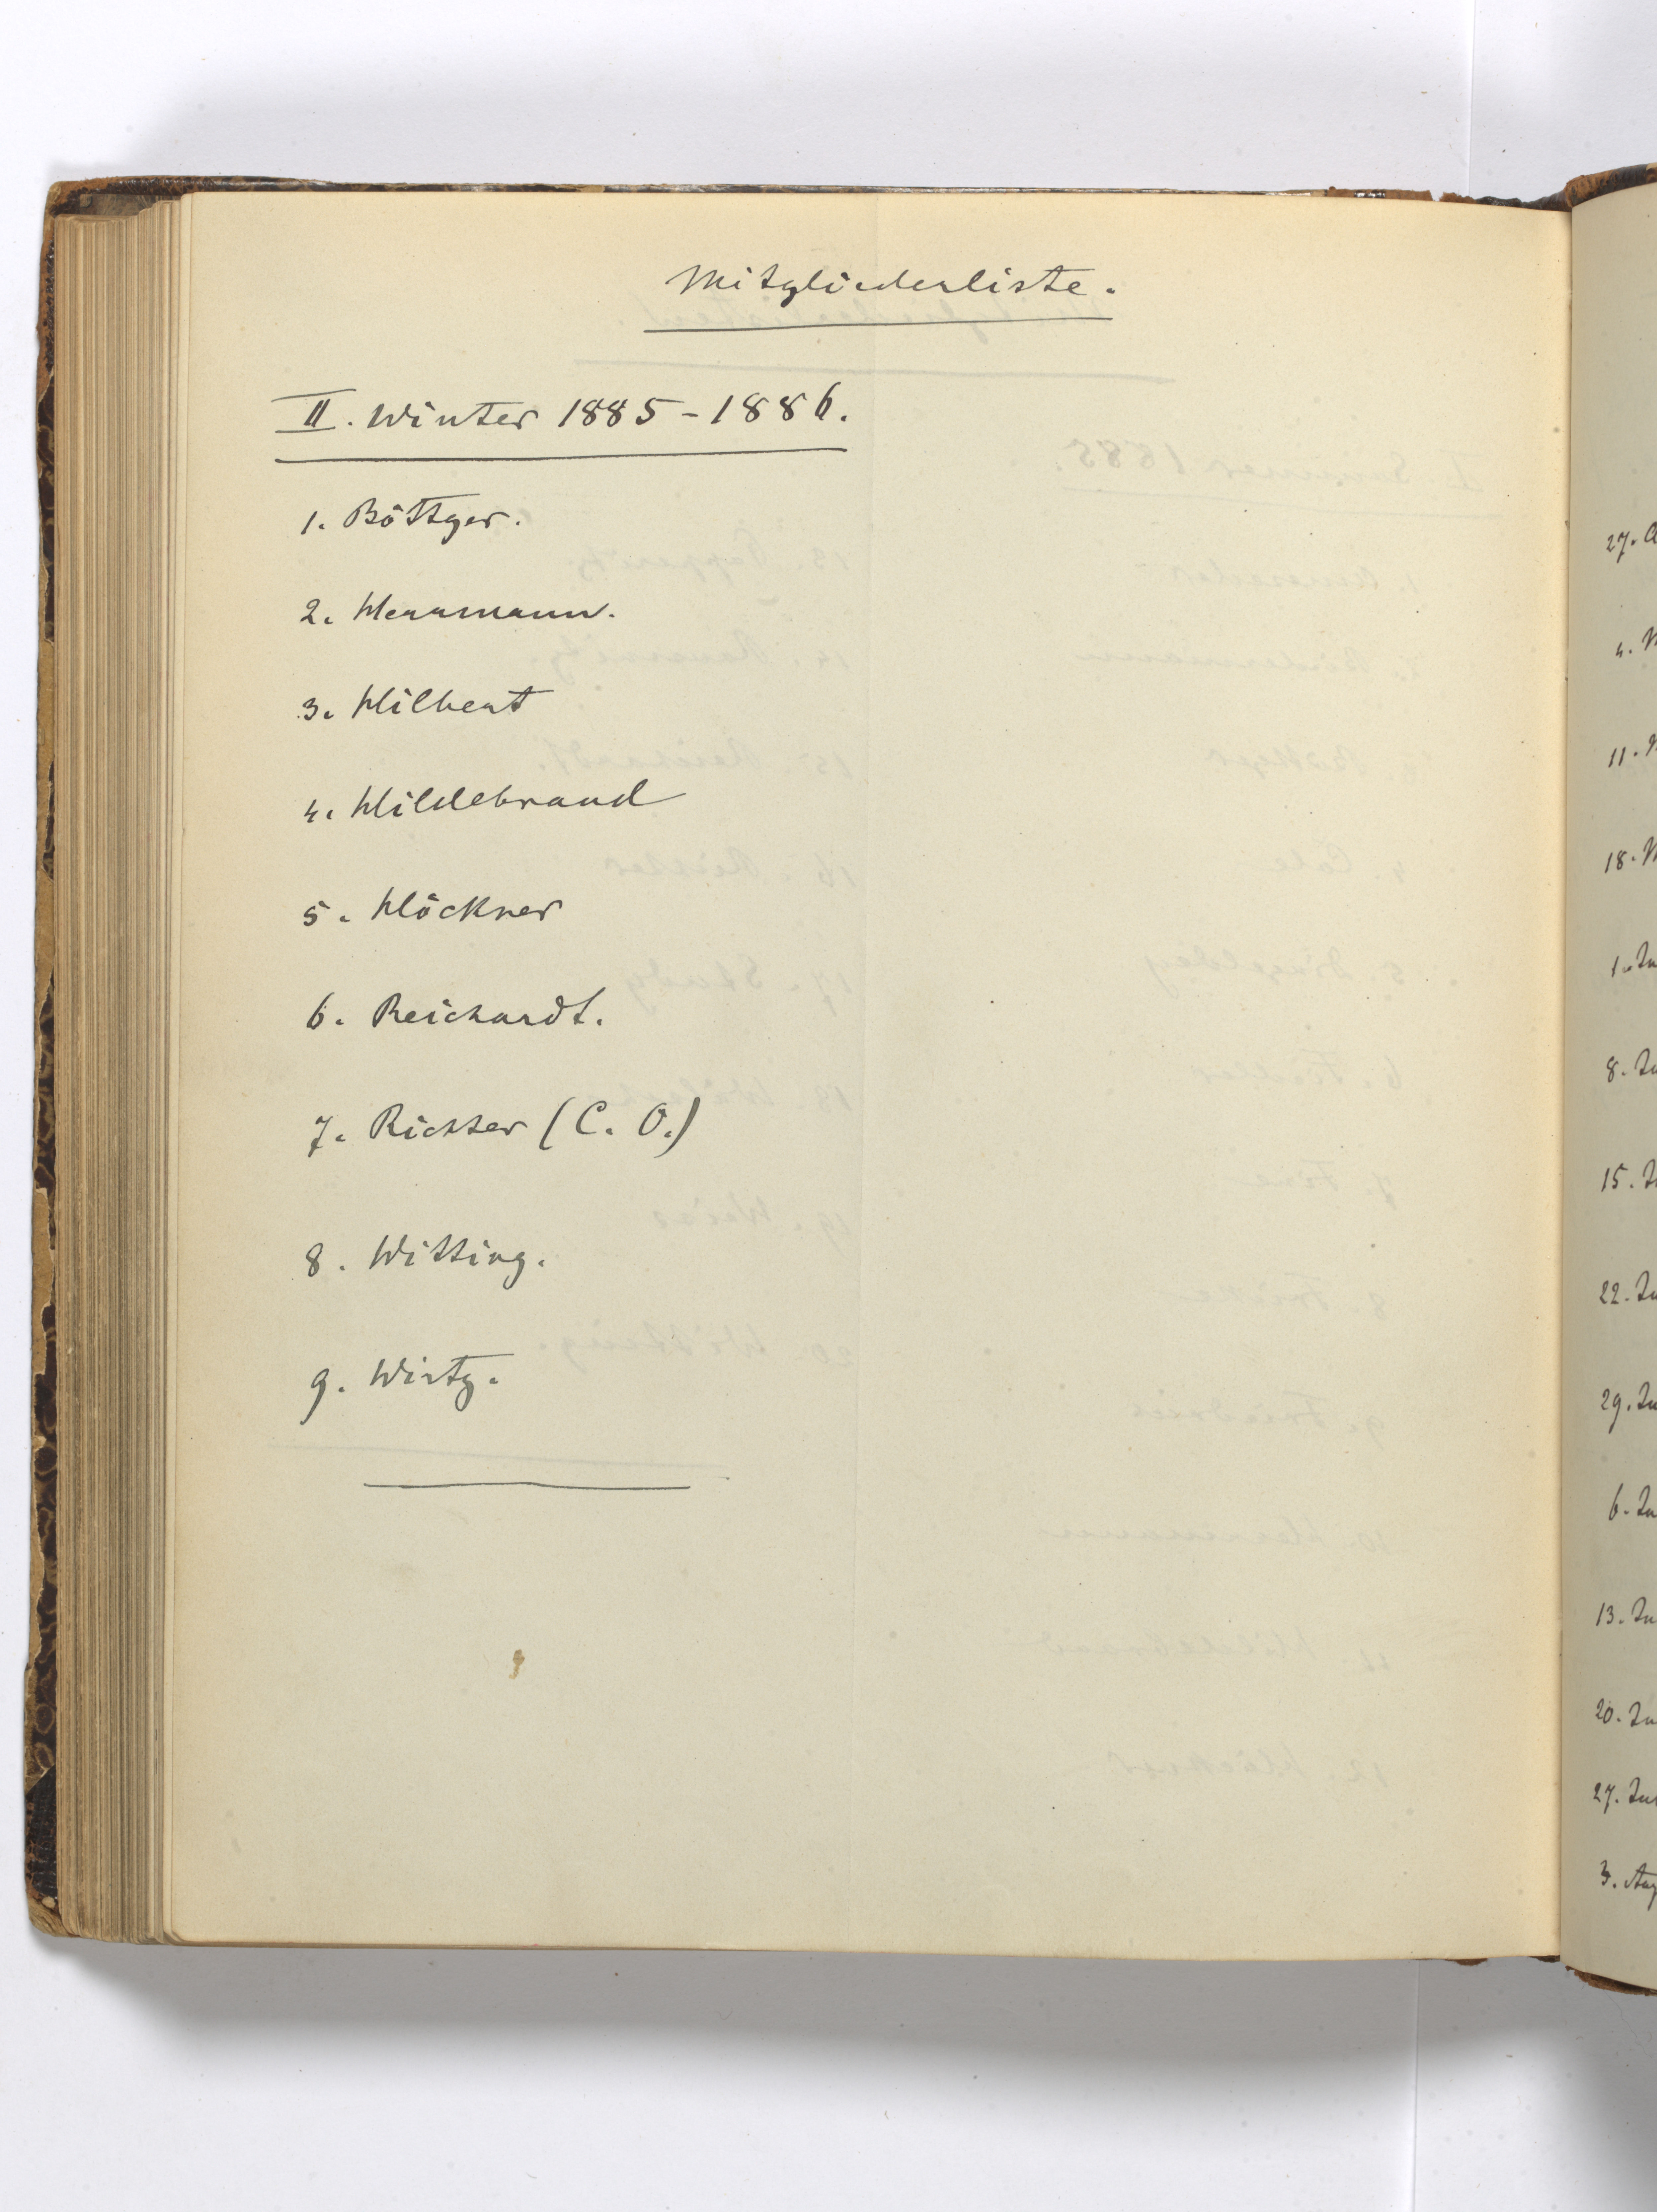 Mitgliederliste.
II. Winter 1885-1886.
1. Böttger.
2. Herrmann.
3. Hilbert
4. Hildebrand
5. Höckner
6. Reichardt.
7. Richter (C. O.)
8. Witting.
9. Wirtz.
27. A
4. M
11. M
18. M
1. Ju
8. Ju
15. Ju
22. Ju
29. Ju
6. Ju
13. Ju
20. Ju
27. Jul
3. Aug